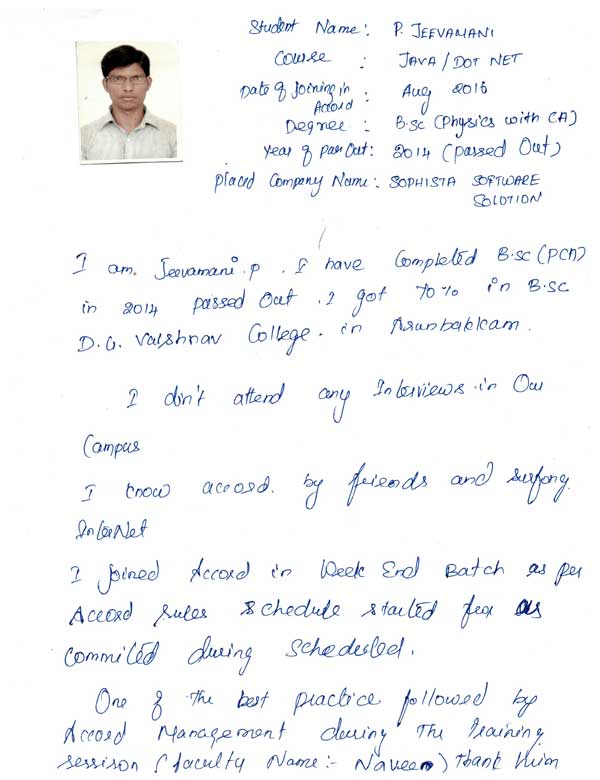 Student Name : P. JEEVAMANI
Course : JAVA / DOT NET
Date of Joining in
Accord : Aug 2016
Degree : B.sc (Physics with CA)
Year of pass Out : 2014 (passed Out)
placed Company Name : SOPHISTA SOFTWARE
SOLUTION
I am. Jeevamani.p . I have Completed B.sc (PCA)
in 2014 passed Out . I got 70% in B.sc
D.G. Vaishnav College. in Arunbakkam.
I don't attend any Interviews in Our
Campus
I know accord. by friends and surfong
InterNet
I joined Accord in Week End Batch as per
Accord rules schedule started as
commited during scheduled.
One of the best practice followed by
Accord Management during The Training
session (faculty Name:- Naveen) Thank him